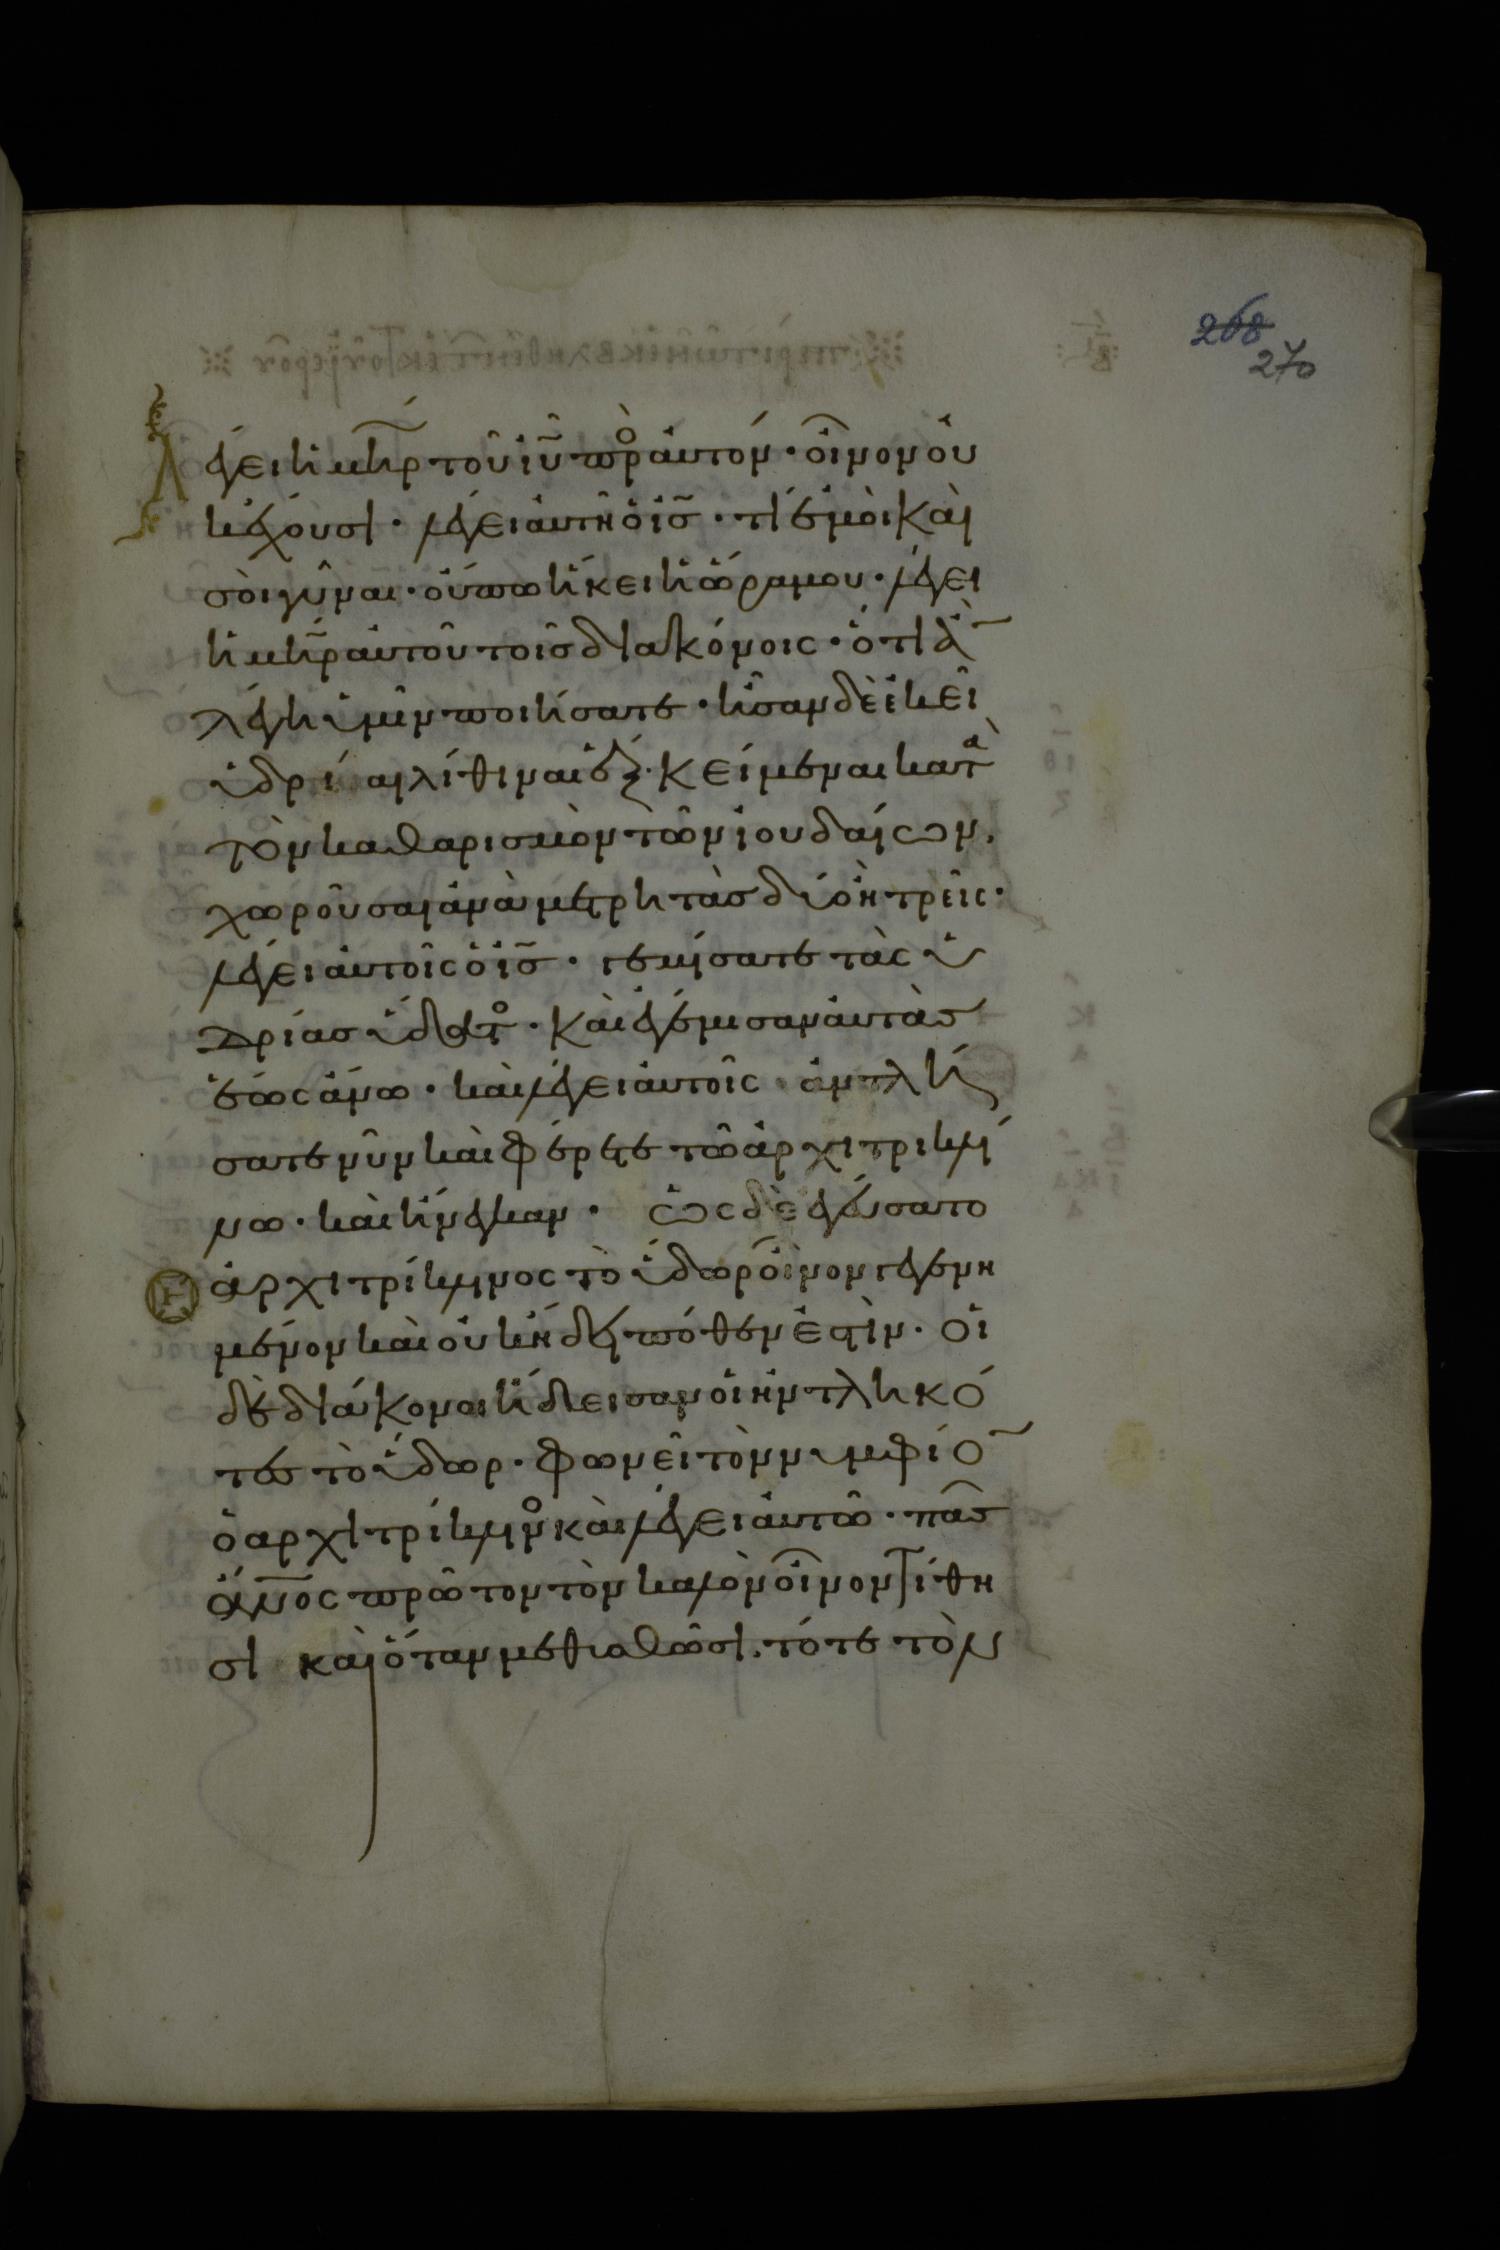 268
270
Λέγει ἡ μηρ τοῦ ἰυ πρὸ αὐτόν · οἶνον οὐ
κ ἔχουσι · λέγει αὐτῆ ὁ ις · τί ἐμοὶ καὶ
σοὶ γύναι · οὔπω ἥκει ἡ ὥρα μου · λέγει
ἡ μηρ αὐτοῦ τοῖς διακόνοις · ὅ τι ἂ
λέγη ὑμῖν ποιήσατε · ἦσαν δὲ ἐκεῖ
ὑδρίαι λίθιναι ἓξ · κείμεναι κατὰ
τὸν καθαρισμὸν τῶν ἰουδαίων ·
χωροῦσαι ἀνὰ μετρητὰς δύο ἢ τρεῖς ·
λέγει αὐτοῖς ὁ ις · γεμίσατε τὰς ὑ
δρίας ὕδατο · καὶ ἐγέμισαν αὐτὰς
ἕως ἄνω · καὶ λέγει αὐτοῖς ἀντλή
σατε νῦν καὶ φέρετε τῶ ἀρχιτρικλί
νω · καὶ ἤνεγκαν · ὡς δὲ ἐγεύσατο
ὁ ἀρχιτρίκλινος τὸ ὕδωρ οἶνον γεγενη
μένον καὶ οὐκ ἤδει πόθεν ἐστὶν · οἱ
δὲ διάκονοι ἤδεισαν οἱ ἠντληκό
τες τὸ ὕδωρ · φωνεῖ τὸν νυμφίο
ὁ αρχιτρίκλινο καὶ λέγει αὐτῶ · πᾶς
ἄνος πρῶτον τὸν καλὸν οἶνον τίθη
σι καὶ ὅταν μεθυσθῶσι · τότε τὸν